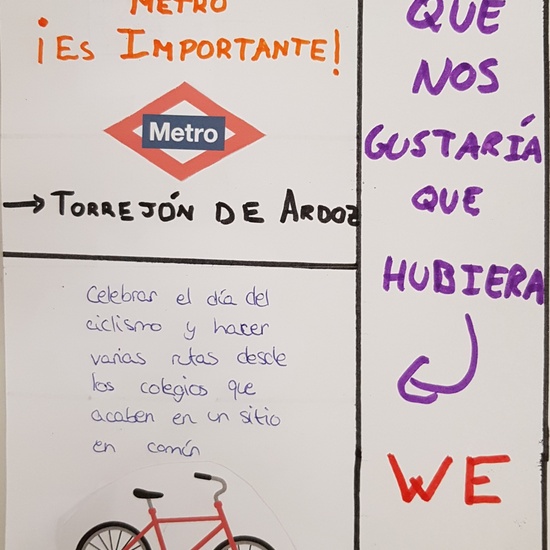 METRO
¡ES IMPORTANTE!
Metro
→ TORREJÓN DE ARDOZ
Celebrar el día del
ciclismo y hacer
varias rutas desde
los colegios que
acaben en un sitio
en común
QUE
NOS
GUSTARÍA
QUE
HUBIERA
WE